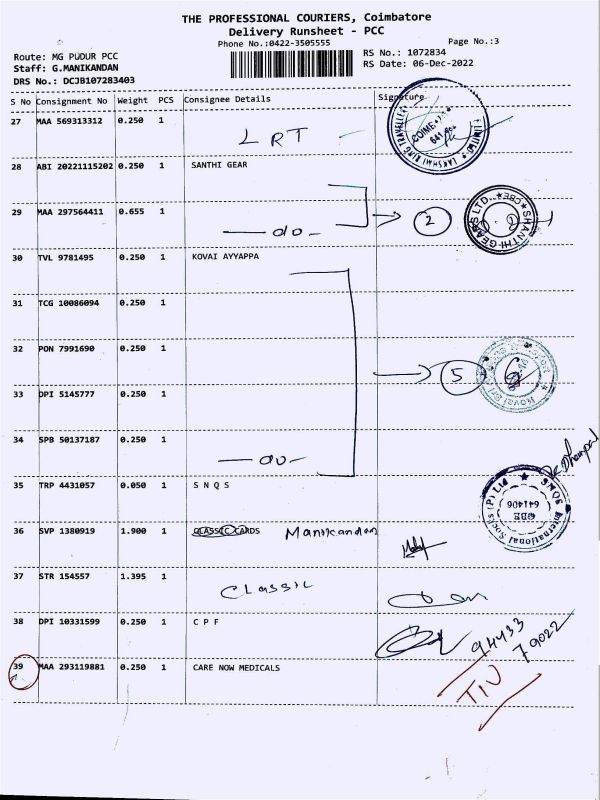 THE PROFESSIONAL COURIERS, Coimbatore
Delivery Runsheet - PCC
Phone No.:0422-3505555
Page No.:3
Route: MG PUDUR PCC
RS No.: 1072834
Staff: G.MANIKANDAN
RS Date: 06-Dec-2022
DRS No.: DCJB107283403
S No Consignment No Weight PCS Consignee Details Signature
27 MAA 569313312 0.250 1
LRT
28 ABI 20221115202 0.250 1 SANTHI GEAR
29 MAA 297564411 0.655 1
do
2
SHANTHI GEARS LTD. CBE
30 TVL 9781495 0.250 1 KOVAI AYYAPPA
31 TCG 10086094 0.250 1
32 PON 7991690 0.250 1
5
33 DPI 5145777 0.250 1
34 SPB 50137187 0.250 1
do
35 TRP 4431057 0.050 1 S N Q S
SNQS International Socks (P) Ltd
CBE
641406
36 SVP 1380919 1.900 1 CLASSIC CARDS Manikandan
37 STR 154557 1.395 1
Classic
38 DPI 10331599 0.250 1 C P F
94433
79022
39 MAA 293119881 0.250 1 CARE NOW MEDICALS